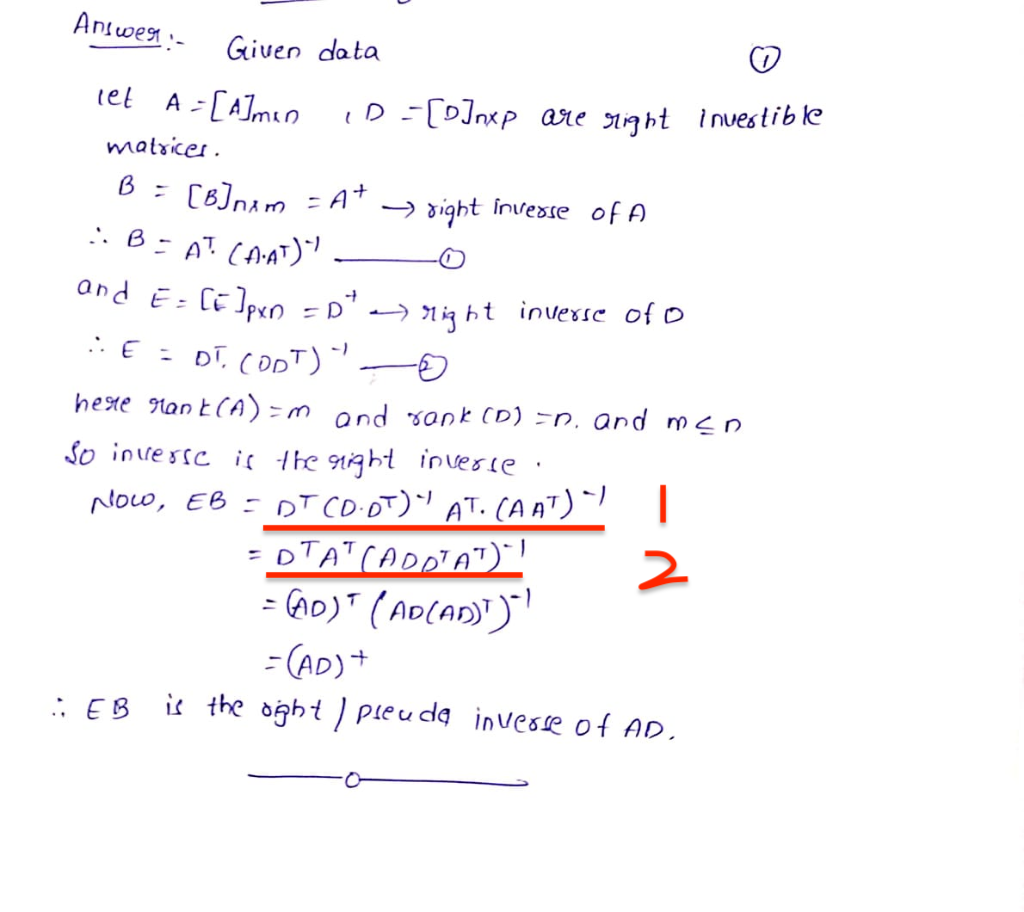 Answer:- Given data ①
let A = [A]m×n , D = [D]n×p are right invertible
matrices.
B = [B]n×m = A⁺ → right inverse of A
∴ B = Aᵀ. (A·Aᵀ)⁻¹ ——— ①
and E = [E]p×n = D⁺ → right inverse of D
∴ E = Dᵀ. (DDᵀ)⁻¹ —— ②
here rank(A) = m and rank (D) = n. and m ≤ n
So inverse is the right inverse.
Now, EB = Dᵀ (D·Dᵀ)⁻¹ Aᵀ. (A Aᵀ)⁻¹ 1
= DᵀAᵀ (ADDᵀAᵀ)⁻¹ 2
= (AD)ᵀ (AD(AD)ᵀ)⁻¹
= (AD)⁺
∴ EB is the right / pseuda inverse of AD.